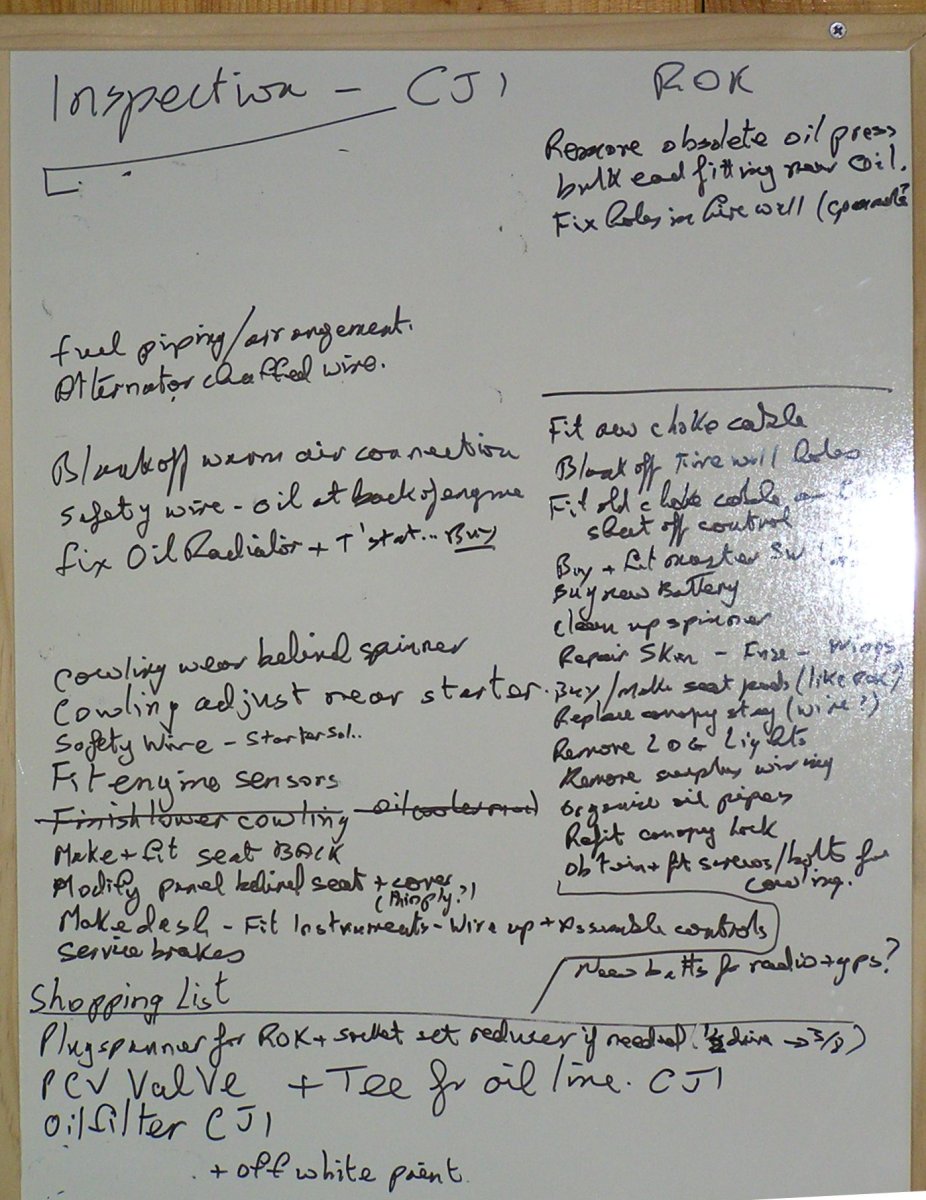 Inspection - CJ1
fuel piping/arrangement.
Alternator chaffed wire.
Blank off warm air connection
Safety wire - oil at back of engine
fix Oil Radiator + T'stat... Buy
Cowling wear behind spinner
Cowling adjust near starter.
Safety Wire - Starter Sol..
Fit engine sensors
Finish lower cowling
Make + fit seat BACK
Modify panel behind seat + cover
Make dash - Fit Instruments - Wire up + Assemble controls
Service brakes
ROK
Remove obsolete oil press
bulk ead fitting near Oil.
Fix holes in fire wall
Fit new choke cable
Blank off Fire wall holes
Fit old choke cable
shut off control
Buy + fit master
Buy new Battery
Clean up spinner
Repair Skin - Fuse - Wings
Buy/Make seat pads (like ROK?)
Replace canopy stay (wire?)
Remove Lights
Remove surplus wiring
Organise oil pipes
Refit canopy lock
Obtain + fit screws/bolts for
cowling.
New batts for radio + gps?
Shopping List
Plug spanner for ROK + socket set reducer if needed (1/2 drive → 3/8)
PCV Valve + Tee for oil line. CJ1
Oil filter CJ1
+ off white paint.